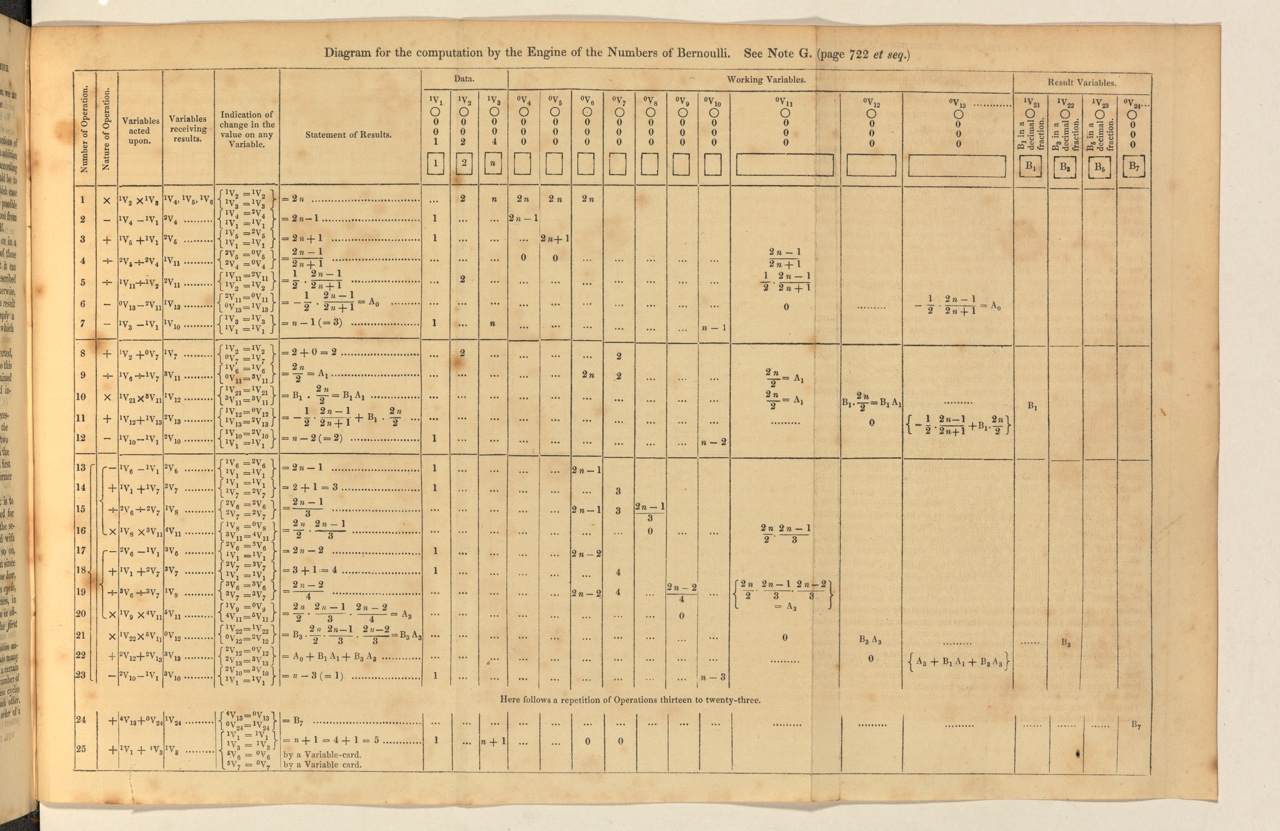 Diagram for the computation by the Engine of the Numbers of Bernoulli. See Note G. (page 722 et seq.)
Data. Working Variables. Result Variables.
Number of Operation. Nature of Operation. Variables acted upon. Variables receiving results. Indication of change in the value on any Variable. Statement of Results.
¹V₁ ¹V₂ ¹V₃ ⁰V₄ ⁰V₅ ⁰V₆ ⁰V₇ ⁰V₈ ⁰V₉ ⁰V₁₀ ⁰V₁₁ ⁰V₁₂ ⁰V₁₃ ............ ¹V₂₁ ¹V₂₂ ¹V₂₃ ⁰V₂₄...
○ ○ ○ ○ ○ ○ ○ ○ ○ ○ ○ ○ ○ ○ ○ ○ ○
0 0 0 0 0 0 0 0 0 0 0 0 0 B₁ in a decimal fraction. B₃ in a decimal fraction. B₅ in a decimal fraction. 0
0 0 0 0 0 0 0 0 0 0 0 0 0 0
1 2 4 0 0 0 0 0 0 0 0 0 0 0
1 2 n B₁ B₃ B₅ B₇
1 × ¹V₂ × ¹V₃ ¹V₄, ¹V₅, ¹V₆ { ¹V₂ = ¹V₂ ¹V₃ = ¹V₃ } = 2n ... 2 n 2n 2n 2n
2 − ¹V₄ − ¹V₁ ²V₄ ......... { ¹V₄ = ²V₄ ¹V₁ = ¹V₁ } = 2n − 1 1 ... ... 2n − 1
3 + ¹V₅ + ¹V₁ ²V₅ ......... { ¹V₅ = ²V₅ ¹V₁ = ¹V₁ } = 2n + 1 1 ... ... ... 2n + 1
4 ÷ ²V₅ ÷ ²V₄ ¹V₁₁ ......... { ²V₅ = ⁰V₅ ²V₄ = ⁰V₄ } = (2n − 1)/(2n + 1) ... ... ... 0 0 ... ... ... ... ... (2n − 1)/(2n + 1)
5 ÷ ¹V₁₁ ÷ ¹V₂ ²V₁₁ ......... { ¹V₁₁ = ²V₁₁ ¹V₂ = ¹V₂ } = 1/2 · (2n − 1)/(2n + 1) ... 2 ... ... ... ... ... ... ... ... 1/2 · (2n − 1)/(2n + 1)
6 − ⁰V₁₃ − ²V₁₁ ¹V₁₃ ......... { ²V₁₁ = ⁰V₁₁ ⁰V₁₃ = ¹V₁₃ } = − 1/2 · (2n − 1)/(2n + 1) = A₀ ... ... ... ... ... ... ... ... ... ... 0 ......... − 1/2 · (2n − 1)/(2n + 1) = A₀
7 − ¹V₃ − ¹V₁ ¹V₁₀ ......... { ¹V₃ = ¹V₃ ¹V₁ = ¹V₁ } = n − 1 (= 3) 1 ... n ... ... ... ... ... ... n − 1
8 + ¹V₂ + ⁰V₇ ¹V₇ ......... { ¹V₂ = ¹V₂ ⁰V₇ = ¹V₇ } = 2 + 0 = 2 ... 2 ... ... ... ... 2
9 ÷ ¹V₆ ÷ ¹V₇ ³V₁₁ ......... { ¹V₆ = ¹V₆ ⁰V₁₁ = ³V₁₁ } = 2n/2 = A₁ ... ... ... ... ... 2n 2 ... ... ... 2n/2 = A₁
10 × ¹V₂₁ × ³V₁₁ ¹V₁₂ ......... { ¹V₂₁ = ¹V₂₁ ³V₁₁ = ³V₁₁ } = B₁ · 2n/2 = B₁A₁ ... ... ... ... ... ... ... ... ... ... 2n/2 = A₁ B₁ · 2n/2 = B₁A₁ ......... B₁
11 + ¹V₁₂ + ¹V₁₃ ²V₁₃ ......... { ¹V₁₂ = ⁰V₁₂ ¹V₁₃ = ²V₁₃ } = − 1/2 · (2n − 1)/(2n + 1) + B₁ · 2n/2 ... ... ... ... ... ... ... ... ... ... ......... 0 { − 1/2 · (2n − 1)/(2n + 1) + B₁ · 2n/2 }
12 − ¹V₁₀ − ¹V₁ ²V₁₀ ......... { ¹V₁₀ = ²V₁₀ ¹V₁ = ¹V₁ } = n − 2 (= 2) 1 ... ... ... ... ... ... ... ... n − 2
13 − ¹V₆ − ¹V₁ ²V₆ ......... { ¹V₆ = ²V₆ ¹V₁ = ¹V₁ } = 2n − 1 1 ... ... ... ... 2n − 1
14 + ¹V₁ + ¹V₇ ²V₇ ......... { ¹V₁ = ¹V₁ ¹V₇ = ²V₇ } = 2 + 1 = 3 1 ... ... ... ... ... 3
15 ÷ ²V₆ ÷ ²V₇ ¹V₈ ......... { ²V₆ = ²V₆ ²V₇ = ²V₇ } = (2n − 1)/3 ... ... ... ... ... 2n − 1 3 (2n − 1)/3
16 × ¹V₈ × ³V₁₁ ⁴V₁₁ ......... { ¹V₈ = ⁰V₈ ³V₁₁ = ⁴V₁₁ } = 2n/2 · (2n − 1)/3 ... ... ... ... ... ... ... 0 ... ... 2n/2 · (2n − 1)/3
17 − ²V₆ − ¹V₁ ³V₆ ......... { ²V₆ = ³V₆ ¹V₁ = ¹V₁ } = 2n − 2 1 ... ... ... ... 2n − 2
18 + ¹V₁ + ²V₇ ³V₇ ......... { ²V₇ = ³V₇ ¹V₁ = ¹V₁ } = 3 + 1 = 4 1 ... ... ... ... ... 4
19 ÷ ³V₆ ÷ ³V₇ ¹V₉ ......... { ³V₆ = ³V₆ ³V₇ = ³V₇ } = (2n − 2)/4 ... ... ... ... ... 2n − 2 4 ... (2n − 2)/4 ... { 2n/2 · (2n − 1)/3 · (2n − 2)/3 } = A₃
20 × ¹V₉ × ⁴V₁₁ ⁵V₁₁ ......... { ¹V₉ = ⁰V₉ ⁴V₁₁ = ⁵V₁₁ } = 2n/2 · (2n − 1)/3 · (2n − 2)/4 = A₃ ... ... ... ... ... ... ... ... 0 ...
21 × ¹V₂₂ × ⁵V₁₁ ⁰V₁₂ ......... { ¹V₂₂ = ¹V₂₂ ⁰V₁₂ = ²V₁₂ } = B₃ · 2n/2 · (2n − 1)/3 · (2n − 2)/3 = B₃A₃ ... ... ... ... ... ... ... ... ... ... 0 B₃A₃ ......... ...... B₃
22 + ²V₁₂ + ²V₁₃ ³V₁₃ ......... { ²V₁₂ = ⁰V₁₂ ²V₁₃ = ³V₁₃ } = A₀ + B₁A₁ + B₃A₃ ... ... ... ... ... ... ... ... ... ... ......... 0 { A₃ + B₁A₁ + B₃A₃ }
23 − ²V₁₀ − ¹V₁ ³V₁₀ ......... { ²V₁₀ = ³V₁₀ ¹V₁ = ¹V₁ } = n − 3 (= 1) 1 ... ... ... ... ... ... ... ... n − 3
Here follows a repetition of Operations thirteen to twenty-three.
24 + ⁴V₁₃ + ⁰V₂₄ ¹V₂₄ ......... { ⁴V₁₃ = ⁰V₁₃ ⁰V₂₄ = ¹V₂₄ } = B₇ ... ... ... ... ... ... ... ... ... ... ......... ......... ......... ...... ...... ...... B₇
25 + ¹V₁ + ¹V₃ ¹V₃ ......... { ¹V₁ = ¹V₁ ¹V₃ = ¹V₃ ⁵V₆ = ⁰V₆ ⁵V₇ = ⁰V₇ } = n + 1 = 4 + 1 = 5 1 ... n + 1 ... ... 0 0
by a Variable-card.
by a Variable card.